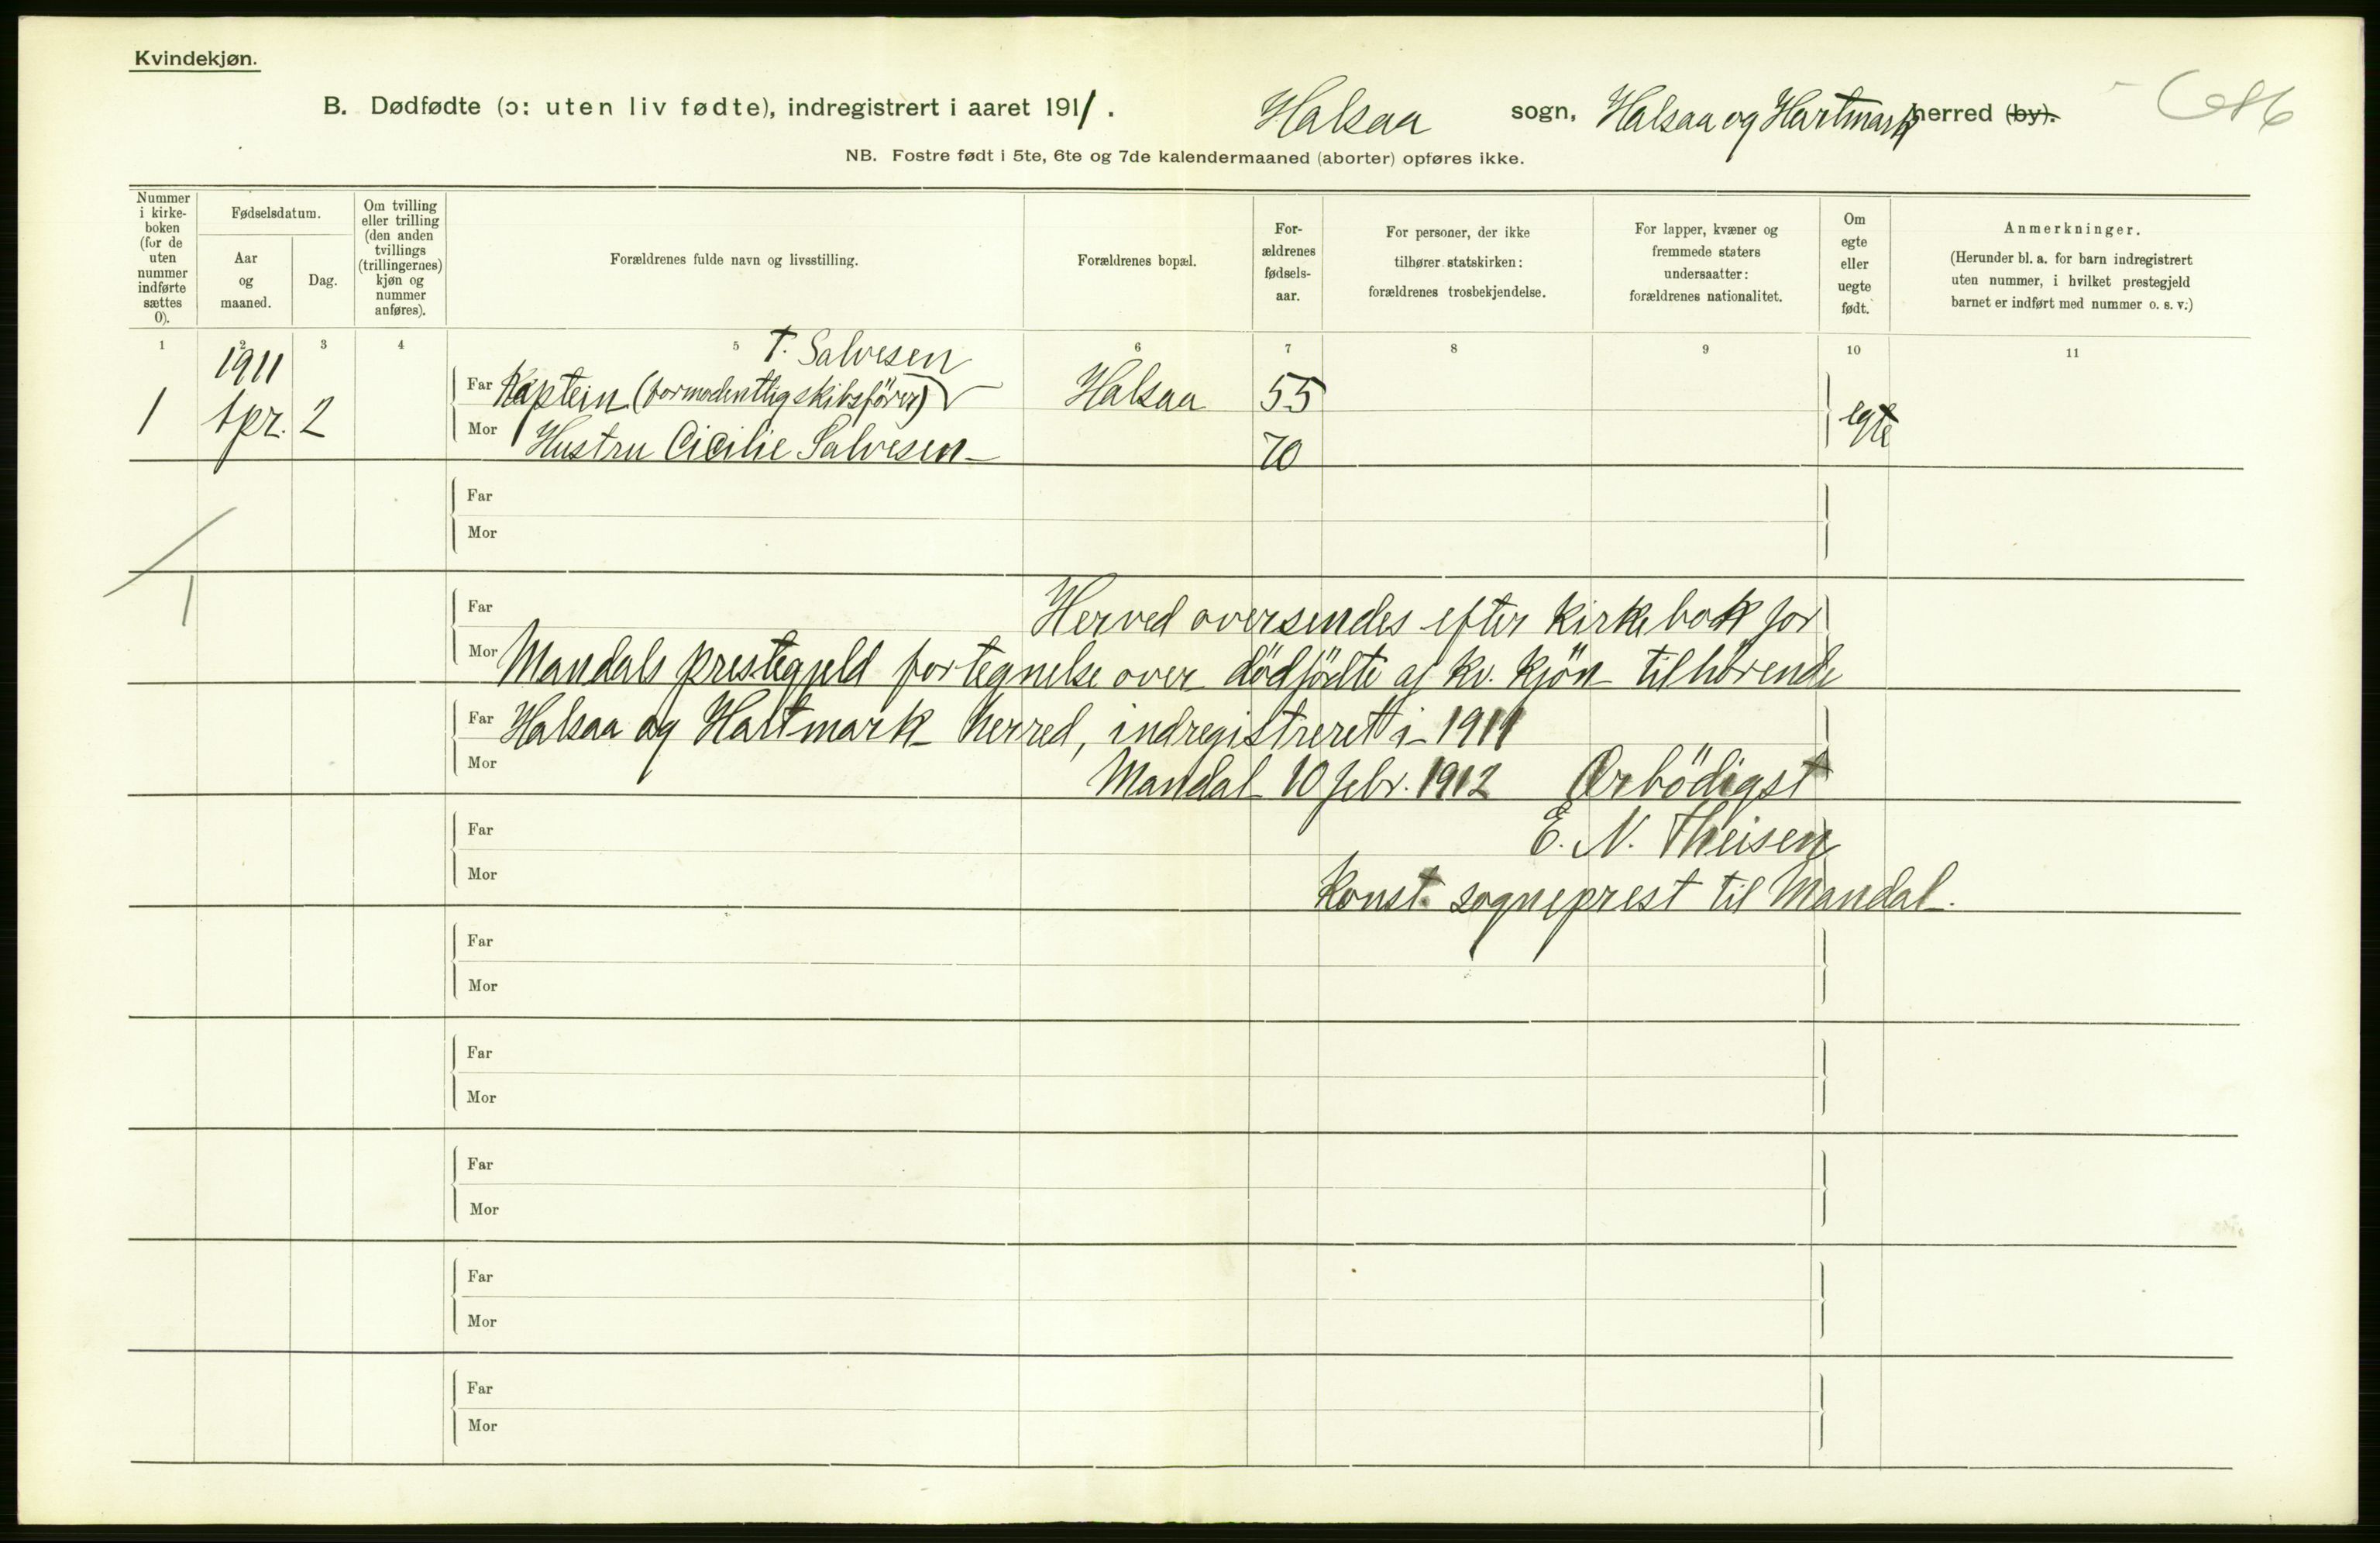 Kvindekjøn.
B. Dødfødte (ɔ: uten liv fødte), indregistrert i aaret 1911. Halsaa sogn, Halsaa og Hartmark herred (by).
NB. Fostre født i 5te, 6te og 7de kalendermaaned (aborter) opføres ikke.
Nummer i kirke- boken (for de uten nummer indførte sættes 0).
Fødselsdatum.
Aar og maaned.
Dag.
Om tvilling eller trilling (den anden tvillings (trillingernes) kjøn og nummer anføres).
Forældrenes fulde navn og livsstilling.
Forældrenes bopæl.
For- ældrenes fødsels- aar.
For personer, der ikke tilhører statskirken: forældrenes trosbekjendelse.
For lapper, kvæner og fremmede staters undersaatter: forældrenes nationalitet.
Om egte eller uegte født.
Anmerkninger.
(Herunder bl. a. for barn indregistrert uten nummer, i hvilket prestegjeld barnet er indført med nummer o. s. v.)
1 2 3 4 5 6 7 8 9 10 11
1911 T. Salvesen
Far Kaptein (formodentlig skibsfører) Halsaa 55
1 Apr. 2 egte
Mor Hustru Cicilie Salvesen 70
Far
Mor
1
Far Herved oversendes efter kirkebok for
Mor Mandals prestegjeld fortegnelse over dödfödte af kv. kjön tilhörende
Far Halsaa og Hartmark herred, indregistreret i 1911
Mor Mandal 10 febr. 1912 Ærbödigst
Far E. N. Theisen
Mor Konst. sogneprest til Mandal.
Far
Mor
Far
Mor
Far
Mor
Far
Mor
Far
Mor